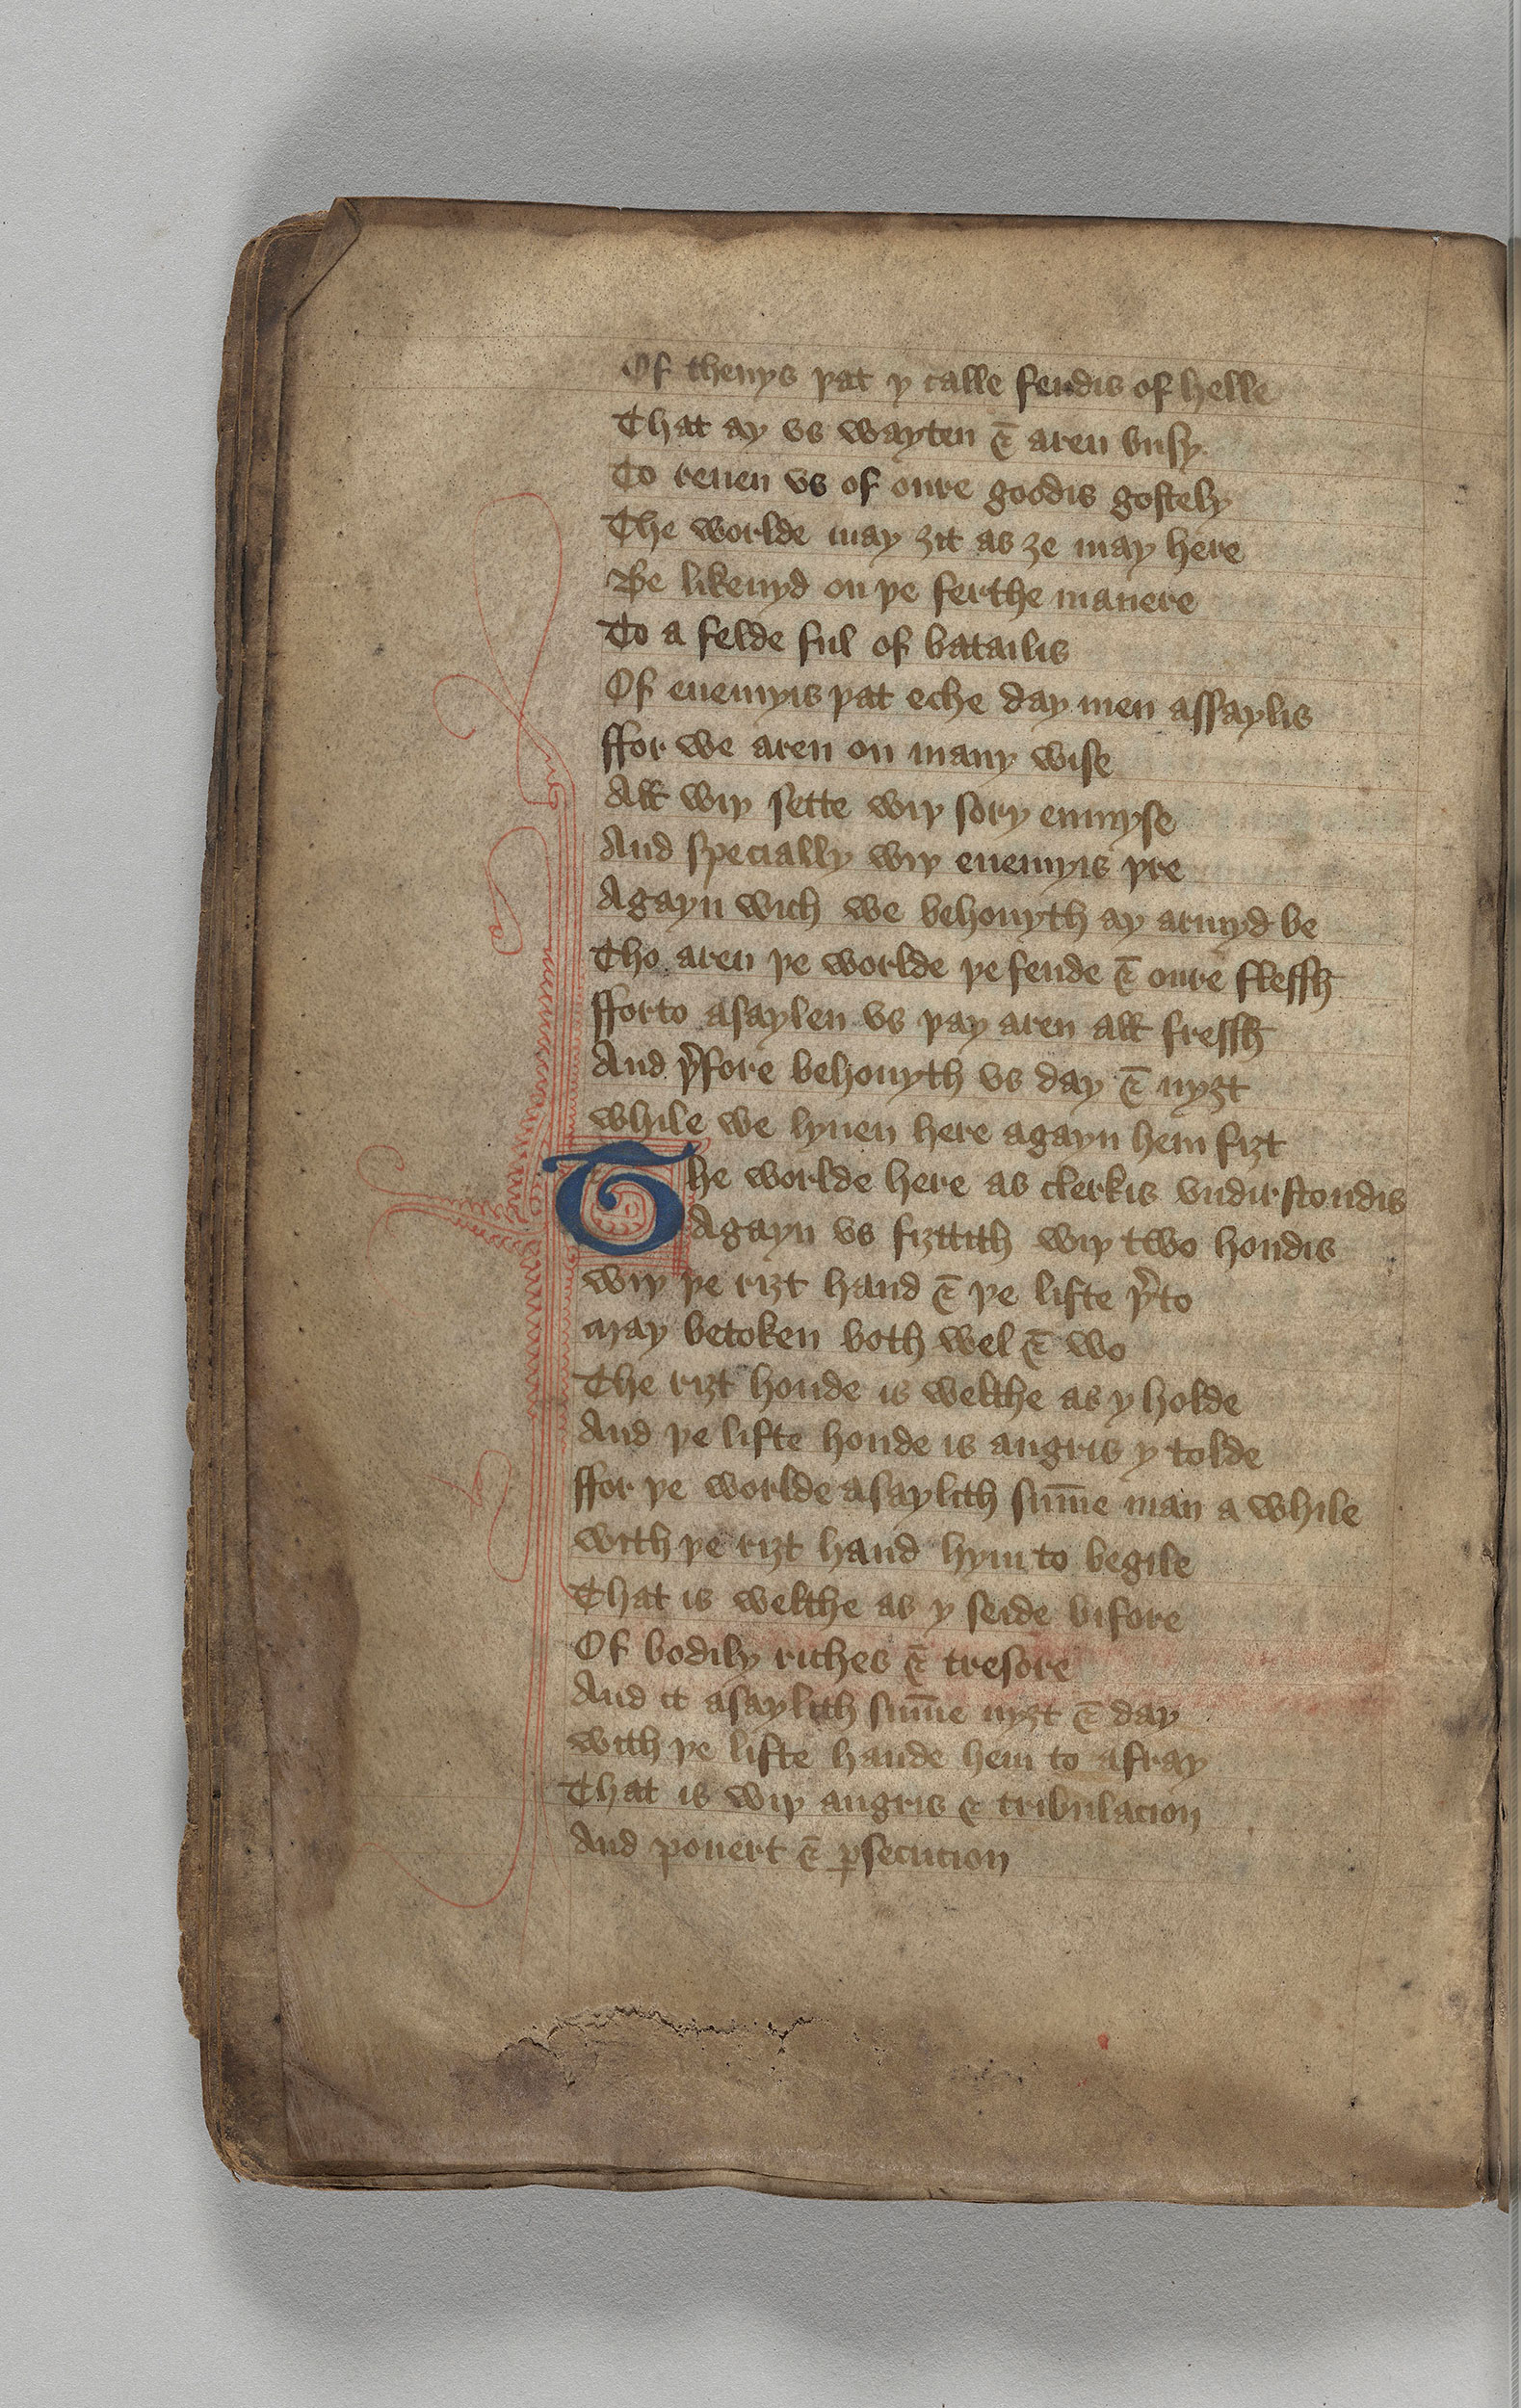 Of theuys þat y calle fendis of helle
That ay vs wayten & aren busy
To reuen vs of oure goodis gostely
The worlde may ȝit as ȝe may here
Be likenyd on þe ferthe manere
To a felde ful of batailis
Of enemyis þat eche day men assaylis
ffor we aren on many wise
All wiþ sette wiþ sory enmyse
And specially wiþ enemyis þre
Agayn wich we behouyth ay armyd be
Tho aren þe worlde þe fende & oure flessh
fforto asaylen vs þay aren all fressh
And þ̉fore behouyth vs day & nyȝt
while we lyuen here agayn hem fiȝt
The worlde here as clerkis vndirstondis
Agayn vs fiȝttith wiþ two hondis
wiþ þe riȝt hand & þe lifte þ̉to
may betoken both wel & wo
The riȝt honde is welthe as y holde
And þe lifte honde is angris y tolde
ffor þe worlde asaylith sum̄e man a while
with þe riȝt hand hym to begile
That is welthe as y seide bifore
Of bodily riches & tresore
And it asaylith sum̄e nyȝt & day
with þe lifte hande hem to afray
That is wiþ angris & tribulacion
And pouert & ꝑsecucion